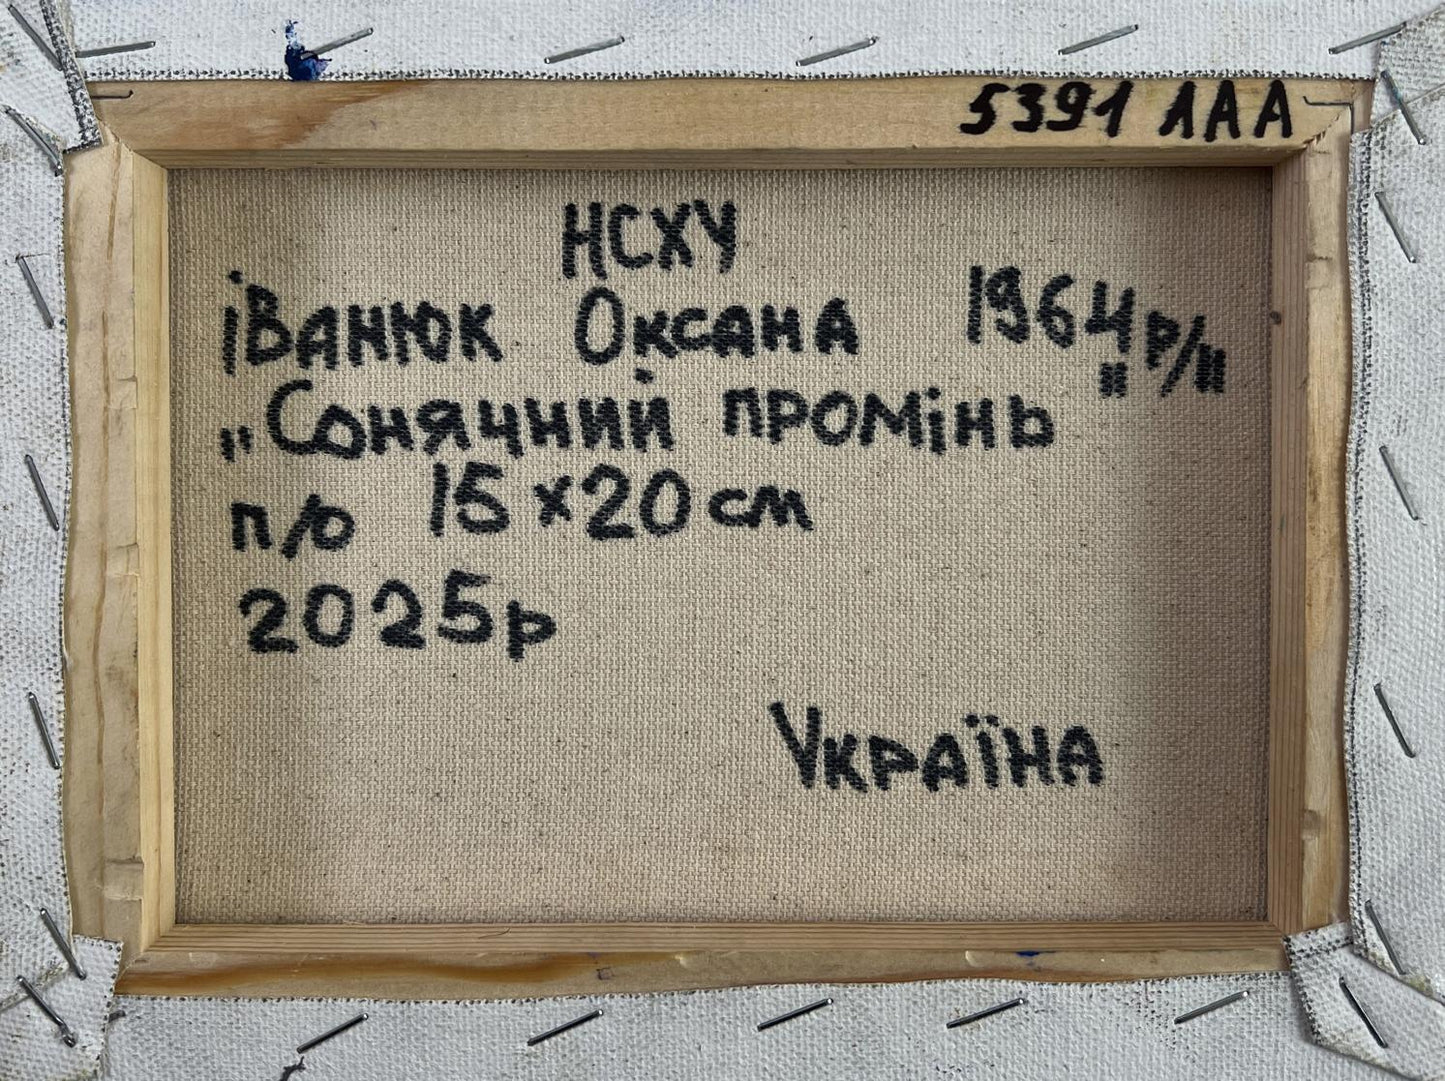 5391 ЛАА
НСХУ
іванюк Оксана 1964 р/н
„Сонячний промінь"
п/о 15×20 см
2025р
Україна